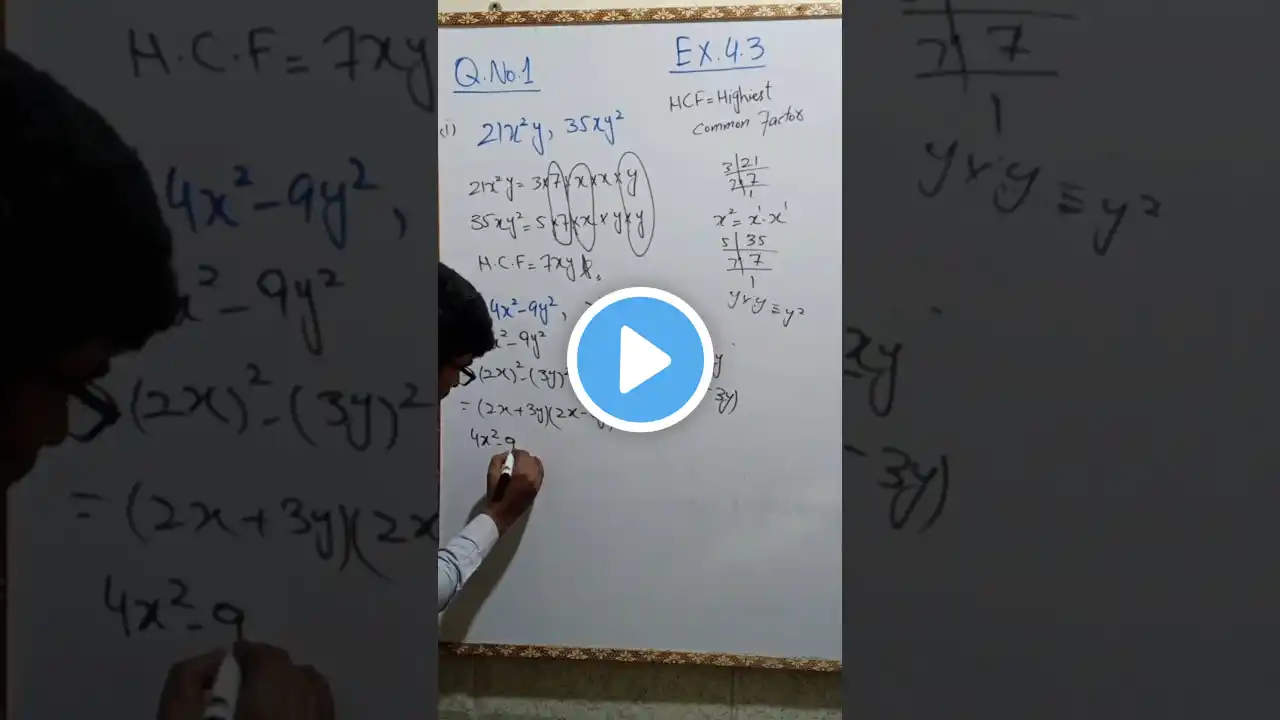 Q.No.1
Ex.4.3
HCF = Highiest
Common Factor
21x²y, 35xy²
21x²y = 3×7×x×x×y
35xy² = 5×7×x×y×y
H.C.F = 7xy
3|21
7|7
1
x² = x¹·x¹
5|35
7|7
1
y×y = y²
4x²-9y²,
x²-9y²
(2x)²-(3y)²
= (2x+3y)(2x-
y
3y)
4x²-9